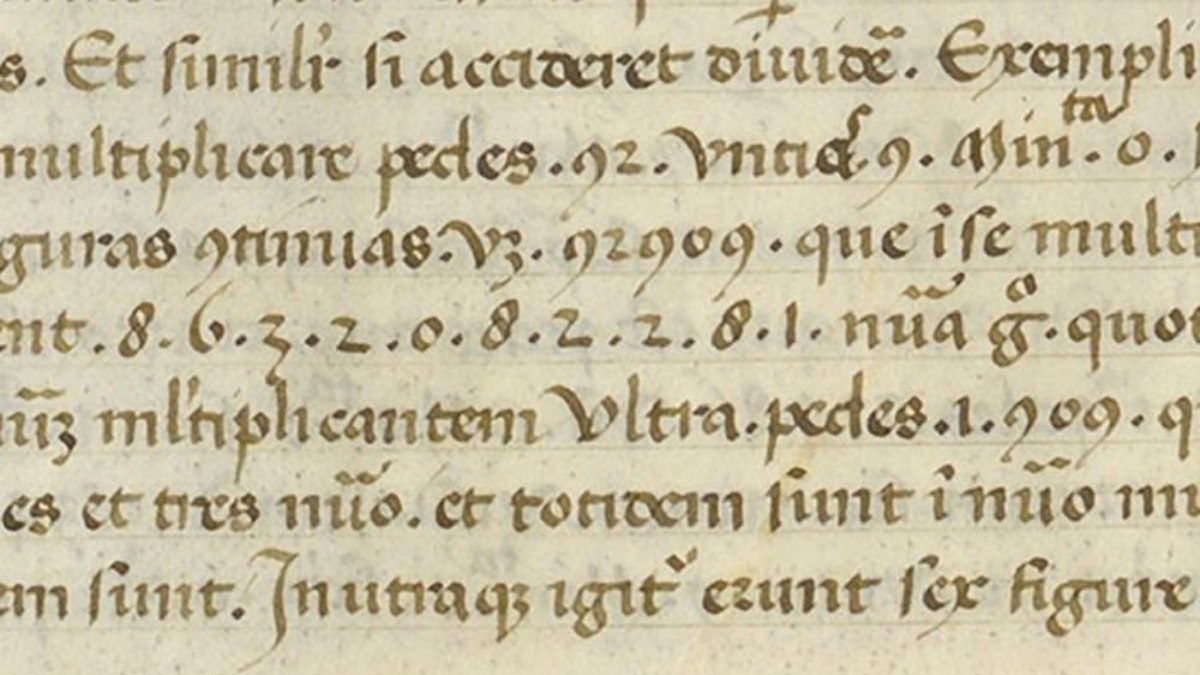 s. Et similr̃ si accideret diuidẽ. Exempli
multiplicare pedes .92. vntiaꝝ 9. Min̄ta. 0.
guras 9tinuas. vꝫ. 92909. que ĩ se multi
ent. 8. 6. 3. 2. 0. 8. 2. 2. 8. 1. nũa g̊. quot
nũꝫ ml̃tiplicantem Vltra. pedes. 1. 909. q
es et tres nũo. et totidem sunt ĩ nũo mu
em sunt. Inutraqꝫ igitr̃ erunt sex figure